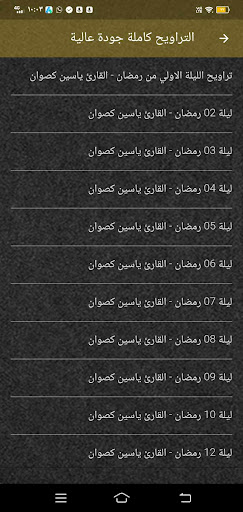 ١٠:٠٣
التراويح كاملة جودة عالية
تراويح الليلة الاولي من رمضان - القارئ ياسين كصوان
ليلة 02 رمضان - القارئ ياسين كصوان
ليلة 03 رمضان - القارئ ياسين كصوان
ليلة 04 رمضان - القارئ ياسين كصوان
ليلة 05 رمضان - القارئ ياسين كصوان
ليلة 06 رمضان - القارئ ياسين كصوان
ليلة 07 رمضان - القارئ ياسين كصوان
ليلة 08 رمضان - القارئ ياسين كصوان
ليلة 09 رمضان - القارئ ياسين كصوان
ليلة 10 رمضان - القارئ ياسين كصوان
ليلة 12 رمضان - القارئ ياسين كصوان